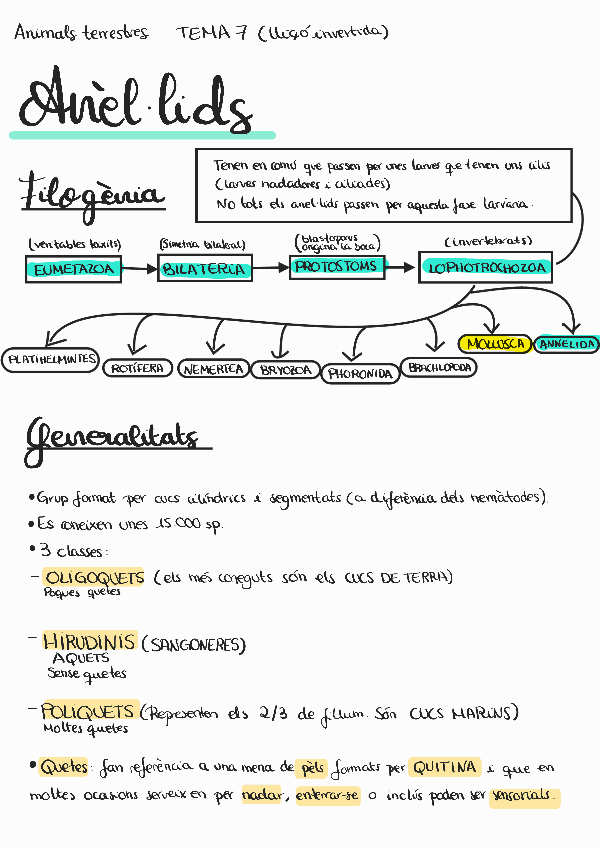 Animals terrestres TEMA 7 (lliçó invertida)
Anèl·lids
Filogènia
Tenen en comú que passen per unes larves que tenen uns cilis
(larves nadadores i ciliades)
No tots els anel·lids passen per aquesta fase larvaria.
(ventables taxits) (Simetria bilateral) (blastoporus origina la boca) (invertebrats)
EUMETAZOA BILATERIA PROTOSTOMS LOPHOTROCHOZOA
MOLLUSCA ANNELIDA
PLATIHELMINTES ROTÍFERA NEMERTEA BRYOZOA PHORONIDA BRACHIOPODA
Generalitats
• Grup format per cucs cilíndrics i segmentats (a diferència dels nemàtodes).
• Es coneixen unes 15 000 sp.
• 3 classes:
– OLIGOQUETS (els més coneguts són els CUCS DE TERRA)
Poques quetes
– HIRUDINIS (SANGONERES)
AQUETS
Sense quetes
– POLIQUETS (Representen els 2/3 de fílum. Són CUCS MARINS)
Moltes quetes
• Quetes: fan referència a una mena de pèls formats per QUITINA i que en
moltes ocasions serveixen per nadar, enterrar-se o inclús poden ser sensorials.